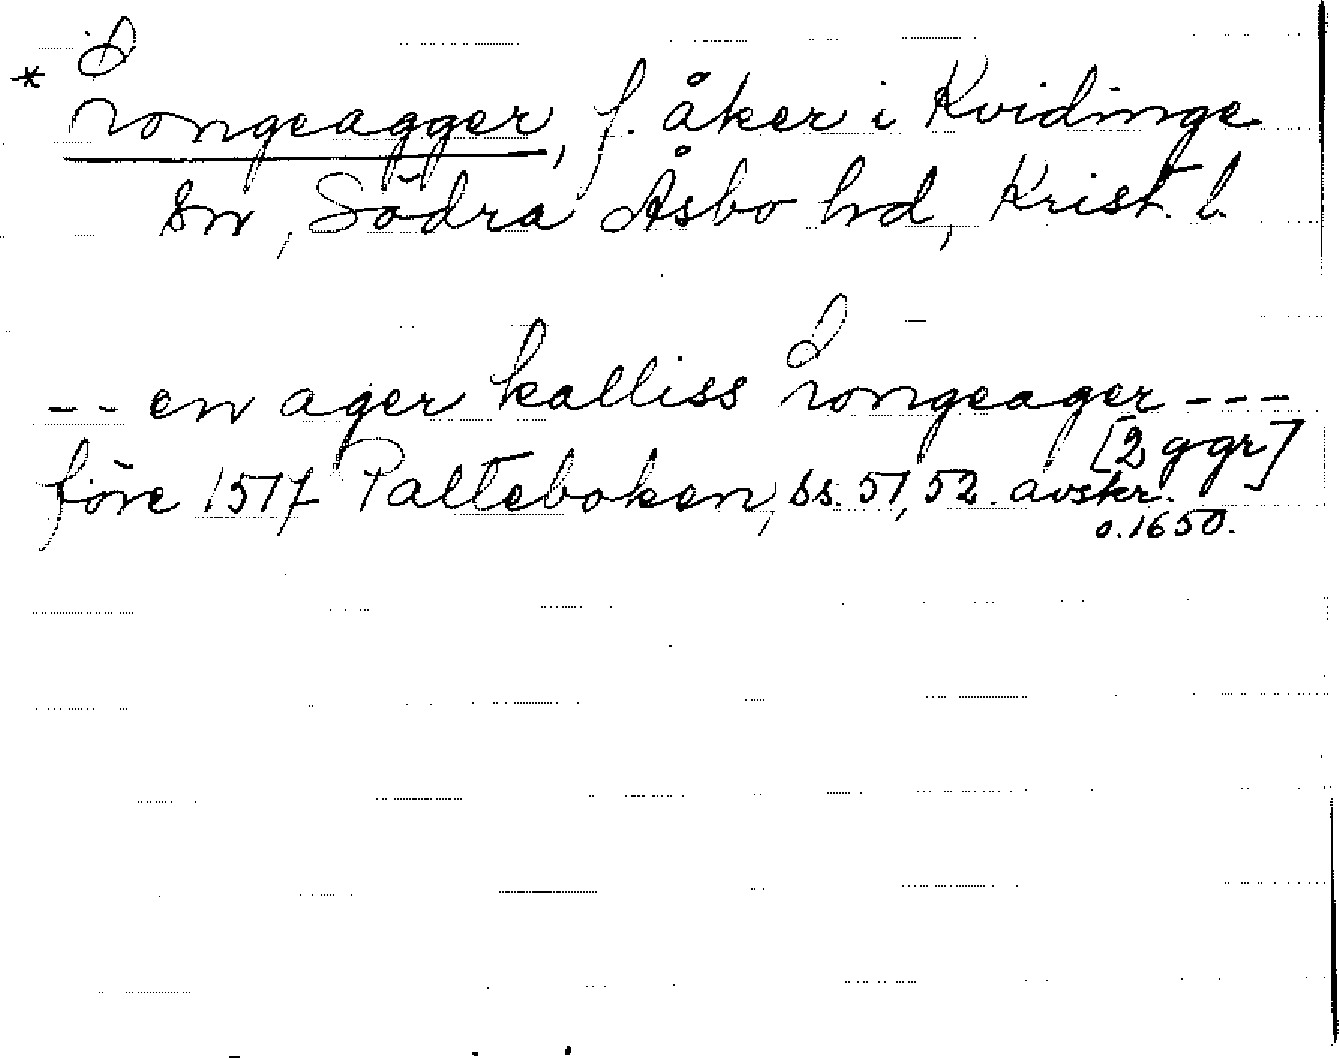 * rongeagger, f. åker i Kvidinge
sn, Södra Åsbo hd, Krist. l.
-- en ager kalliss rongeager ---
[2 ggr]
före 1517 Palteboken, ss. 51, 52. avskr.
o. 1650.